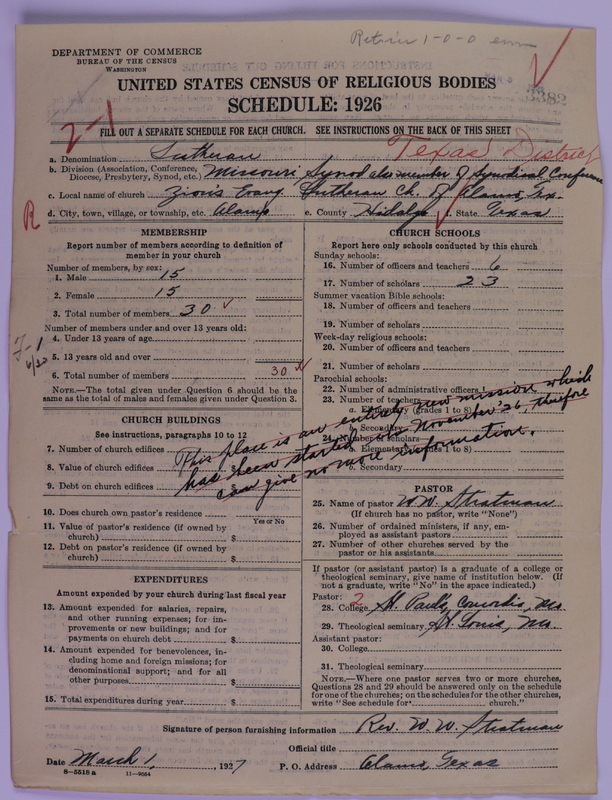 Retain 1-0-0
DEPARTMENT OF COMMERCE
BUREAU OF THE CENSUS
WASHINGTON
UNITED STATES CENSUS OF RELIGIOUS BODIES
SCHEDULE: 1926
3382
2-1
FILL OUT A SEPARATE SCHEDULE FOR EACH CHURCH. SEE INSTRUCTIONS ON THE BACK OF THIS SHEET
Texas District
a. Denomination Lutheran
b. Division (Association, Conference, Diocese, Presbytery, Synod, etc. Missouri Synod also member of Synodical Conference
c. Local name of church Zion's Evang. Lutheran Ch. of Alamo, Tex.
R
d. City, town, village, or township, etc. Alamo e. County Hidalgo f. State Texas
MEMBERSHIP
Report number of members according to definition of
member in your church
Number of members, by sex:
1. Male 15
2. Female 15
3. Total number of members 30
Number of members under and over 13 years old:
4. Under 13 years of age
5. 13 years old and over
6. Total number of members 30
NOTE.—The total given under Question 6 should be the
same as the total of males and females given under Question 3.
CHURCH BUILDINGS
See instructions, paragraphs 10 to 12
7. Number of church edifices
8. Value of church edifices
9. Debt on church edifices
This place is an entirely new mission which
has been started into November '26, therefore
can give no more information.
10. Does church own pastor's residence
Yes or No
11. Value of pastor's residence (if owned by
church) $
12. Debt on pastor's residence (if owned by
church) $
EXPENDITURES
Amount expended by your church during last fiscal year
13. Amount expended for salaries, repairs,
and other running expenses; for im-
provements or new buildings; and for
payments on church debt $
14. Amount expended for benevolences, in-
cluding home and foreign missions; for
denominational support; and for all
other purposes $
15. Total expenditures during year $
CHURCH SCHOOLS
Report here only schools conducted by this church
Sunday schools:
16. Number of officers and teachers 6
17. Number of scholars 23
Summer vacation Bible schools:
18. Number of officers and teachers
19. Number of scholars
Week-day religious schools:
20. Number of officers and teachers
21. Number of scholars
Parochial schools:
22. Number of administrative officers
23. Number of teachers
a. Elementary (grades 1 to 8)
b. Secondary
24. Number of scholars
a. Elementary (grades 1 to 8)
b. Secondary
PASTOR
25. Name of pastor W. W. Stratman
(If church has no pastor, write "None")
26. Number of ordained ministers, if any, em-
ployed as assistant pastors
27. Number of other churches served by the
pastor or his assistants
If pastor (or assistant pastor) is a graduate of a college or
theological seminary, give name of institution below. (If
not a graduate, write "No" in the space indicated.)
Pastor: 2
28. College St. Paul's, Concordia, Mo.
29. Theological seminary St. Louis, Mo.
Assistant pastor:
30. College
31. Theological seminary
NOTE.—Where one pastor serves two or more churches,
Questions 28 and 29 should be answered only on the schedule
for one of the churches; on the schedules for the other churches,
write "See schedule for church."
Signature of person furnishing information Rev. W. W. Stratman
Official title
Date March 1, 1927 P. O. Address Alamo, Texas
8-5518 a 11-9664